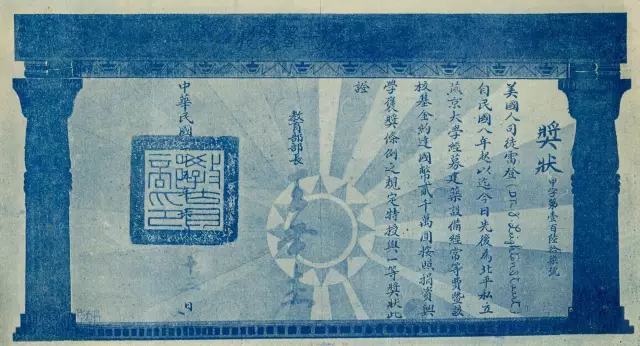 獎狀
中字第壹百陸拾柒號
美國人司徒雷登(Dr. J. Leighton Stuart)
自民國八年起以迄今日先後為北平私立
燕京大學經募建築設備經常等費暨該
校基金約達國幣貳千萬圓按照捐資興
學褒獎條例之規定特授與一等獎狀此
證
教育部部長
中華民國
十二
日
教育部印